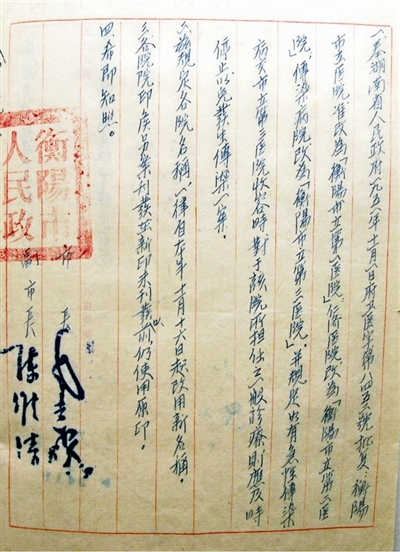 一、奉湖南省人民政府一九五一年十一月八日府医字第八四五號批复：衡陽
市立医院准改为「衡陽市立第一医院」，医院改为「衡陽市立第二医
院」，傳染病院改为「衡陽市立第三医院」，并規定如有急性傳染
病市立第三医院收容時對于該院所担任之一般診療則應及時
停止以免發生傳染一案。
二、茲規定各院名稱一律自本年十一月十六日起改用新名稱。
三、各院院印俟另案刊發在新印未刊發以前仍使用原印。
四、希即知照。
衡陽市
人民政
市長
副市長